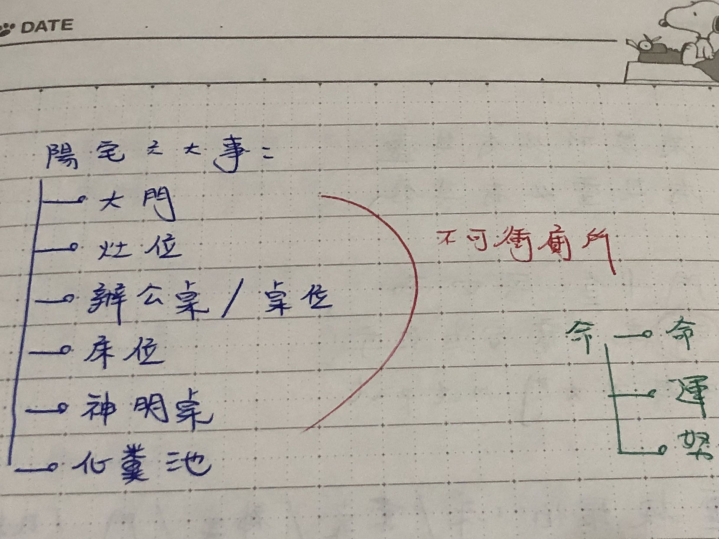 DATE
陽宅之大事：
大門
灶位
辦公桌/桌位
床位
神明桌
化糞池
不可衝廁所
命 命
運